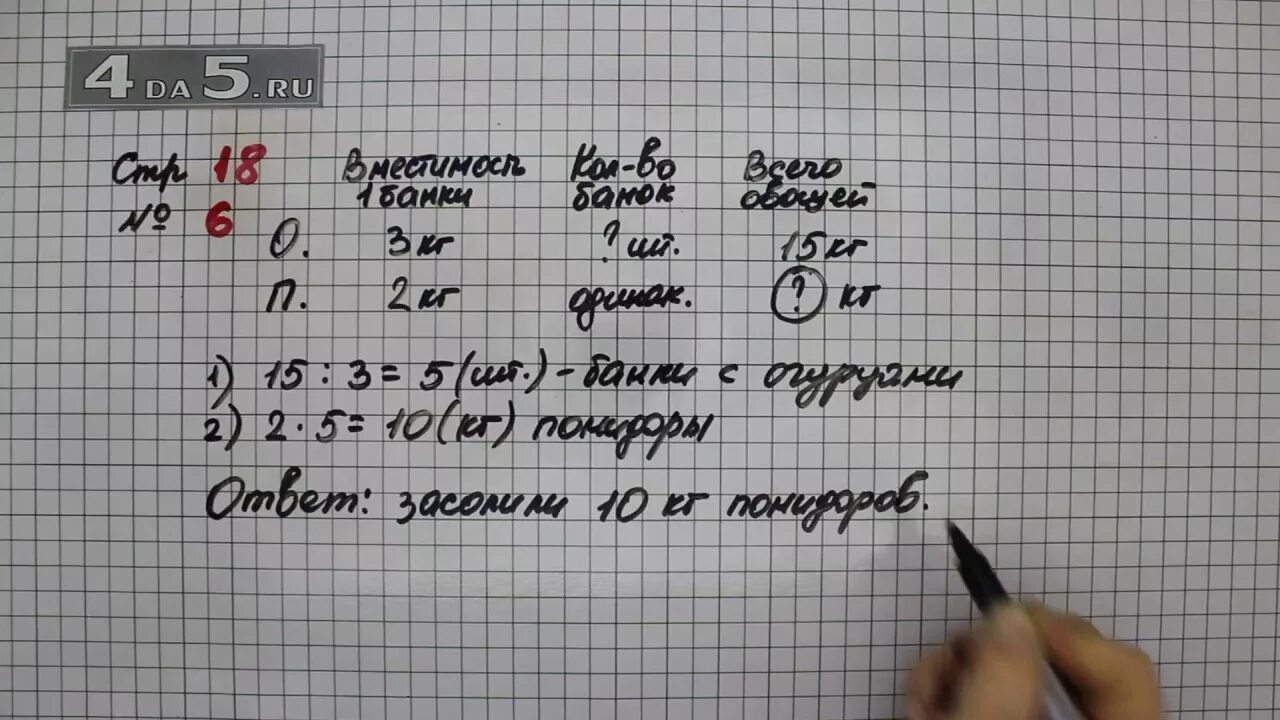 4DA5.RU
Стр 18 Вместимость Кол-во Всего
№ 6 1 банки банок овощей
О. 3 кг ? шт. 15 кг
П. 2 кг одинак. ? кг
1) 15 : 3 = 5 (шт.) - банки с огурцами
2) 2 · 5 = 10 (кг) помидоры
Ответ: засолили 10 кг помидоров.